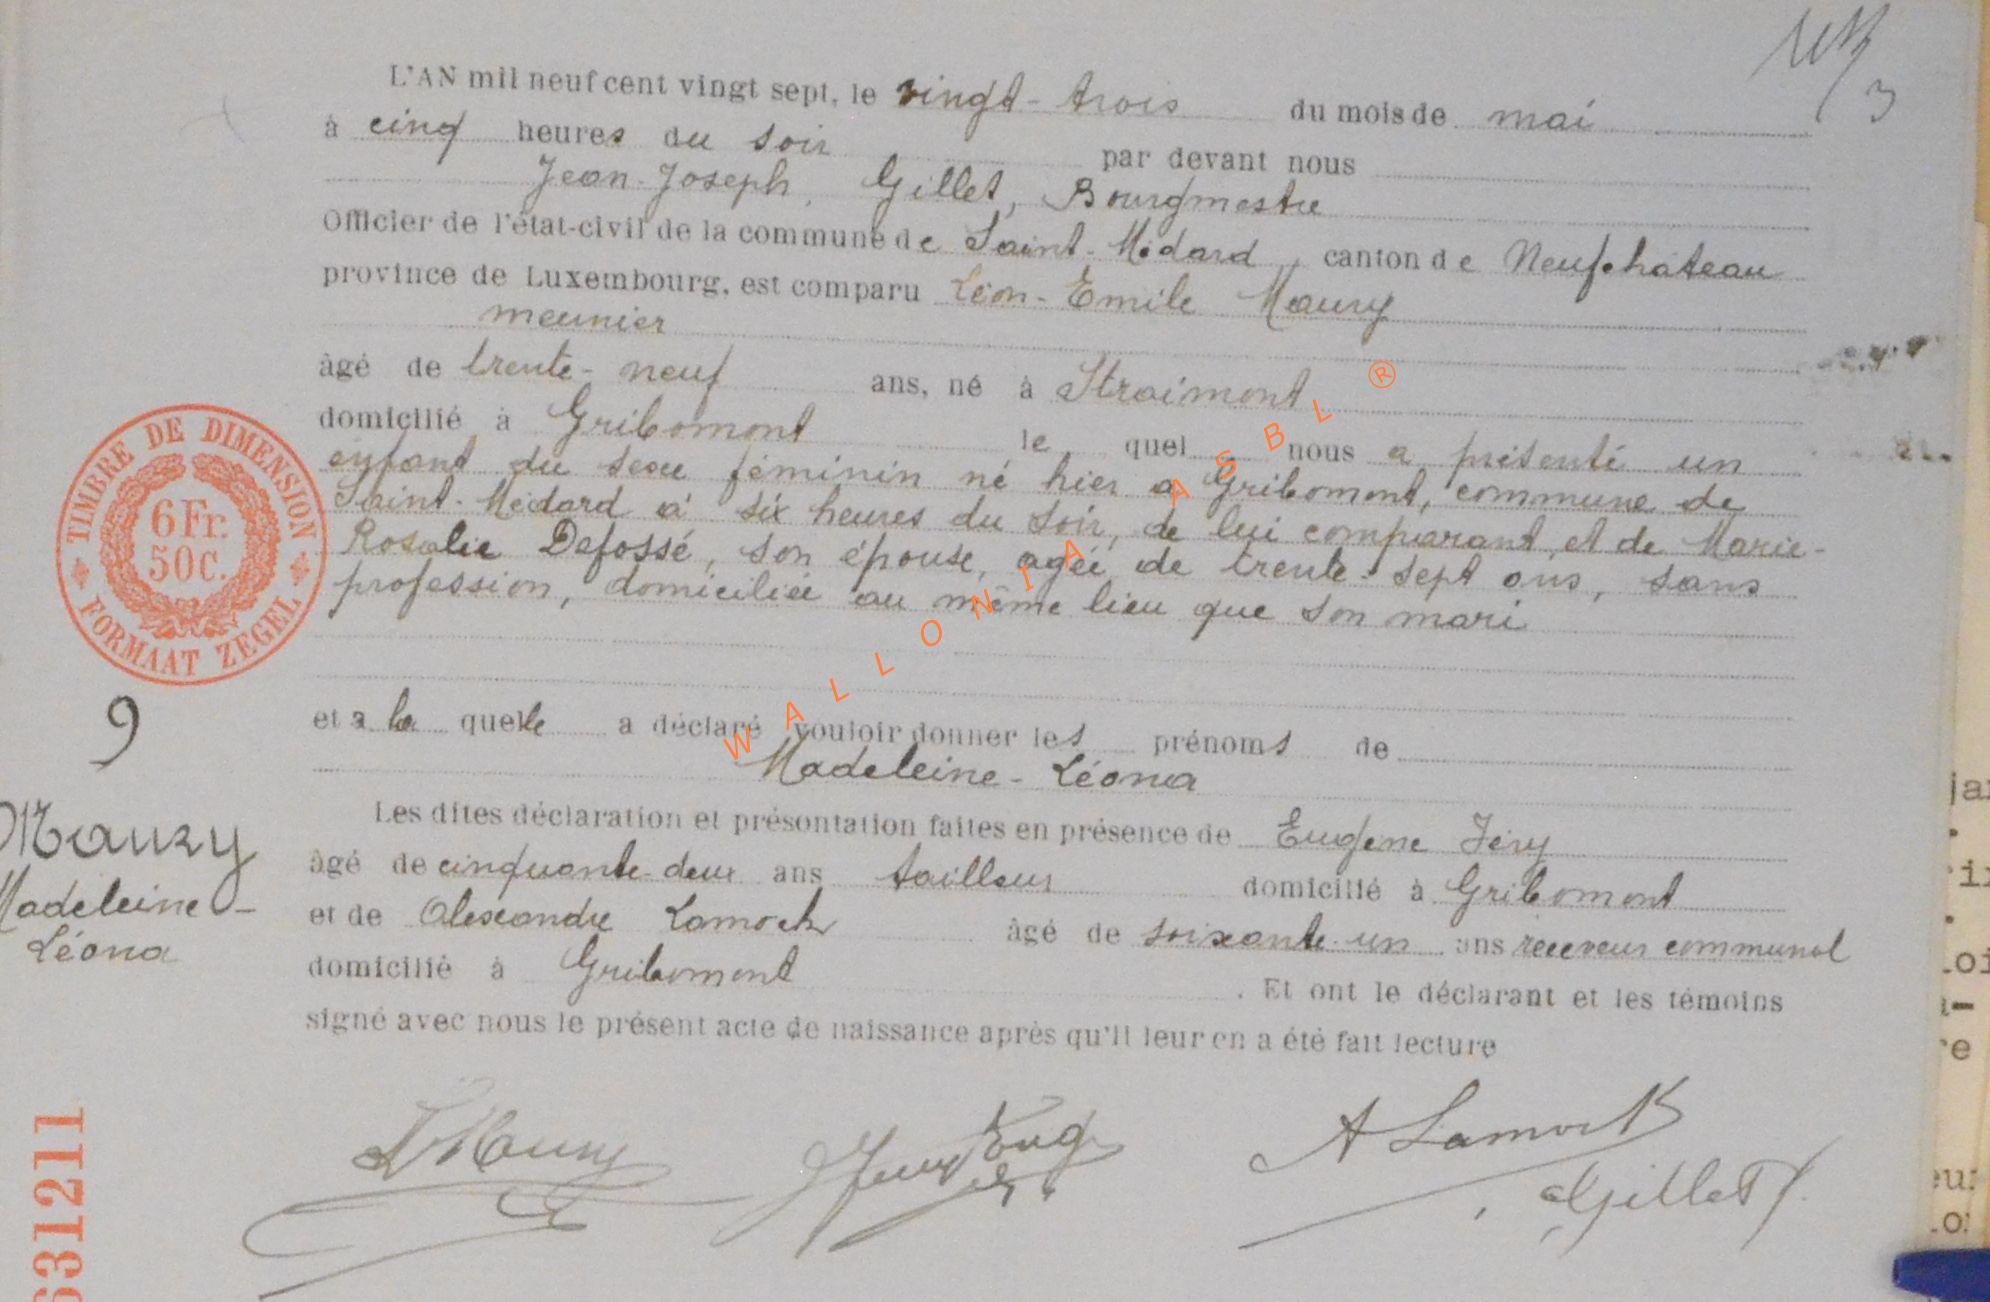 L'AN mil neuf cent vingt sept, le vingt-trois du mois de mai
à cinq heures du soir par devant nous
Jean-Joseph, Gillet, Bourgmestre
Officier de l'état-civil de la commune de Saint-Médard, canton de Neufchâteau
province de Luxembourg, est comparu Léon-Emile Maury
meunier
âgé de trente-neuf ans, né à Straimont
domicilié à Gribomont le quel nous a présenté un
enfant du sexe féminin né hier à Gribomont, commune de
Saint-Médard à six heures du soir, de lui comparant, et de Marie-
Rosalie Defossé, son épouse, agée de trente-sept ans, sans
profession, domiciliée au même lieu que son mari
et a la quelle a déclaré vouloir donner les prénoms de
Madeleine-Léona
Les dites déclaration et présontation faites en présence de Eugène
âgé de cinquante-deux ans tailleur domicilié à Gribomont
et de Alexandre Lamock âgé de soixante-un ans receveur communal
domicilié à Gribomont. Et ont le déclarant et les témoins
signé avec nous le présent acte de naissance après qu'il leur en a été fait lecture
TIMBRE DE DIMENSION
6 Fr.
50 C.
FORMAAT ZEGEL
9
Maury
Madeleine-
Léona
LMaury
Eug
A Lamock
Gillet J.
631211
3
WALLONIA ASBL ®